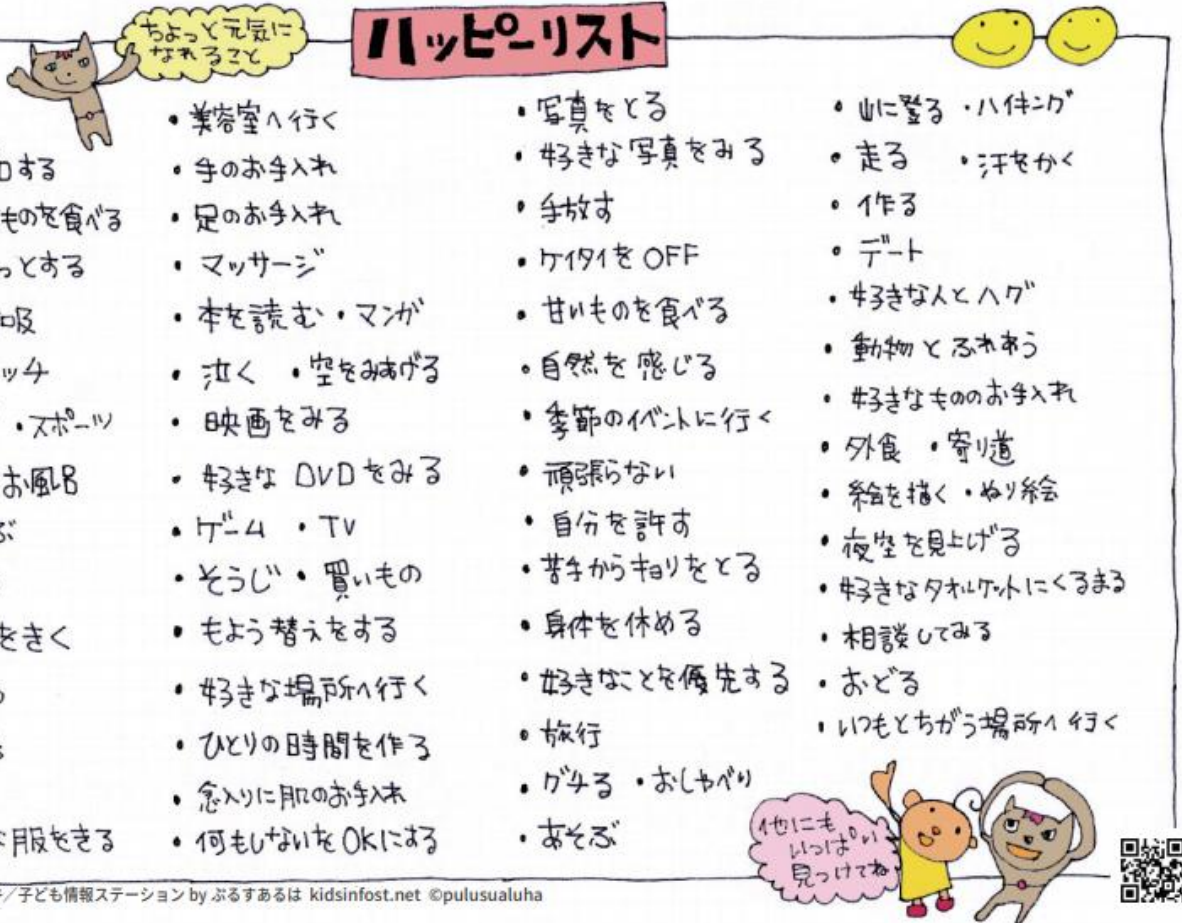 ちょっと元気に
なれること
ハッピーリスト
する
ものを食べる
っとする
吸
ッチ
・スポーツ
お風呂
ぶ
をきく
服をきる
・美容室へ行く
・手のお手入れ
・足のお手入れ
・マッサージ
・本を読む・マンガ
・泣く ・空をみあげる
・映画をみる
・好きな DVDをみる
・ゲーム ・TV
・そうじ・買いもの
・もよう替えをする
・好きな場所へ行く
・ひとりの時間を作る
・念入りに肌のお手入れ
・何もしないをOKにする
・写真をとる
・好きな写真をみる
・手放す
・ケイタイをOFF
・甘いものを食べる
・自然を感じる
・季節のイベントに行く
・頑張らない
・自分を許す
・苦手からキョリをとる
・身体を休める
・好きなことを優先する
・旅行
・グチる ・おしゃべり
・あそぶ
・山に登る ・ハイキング
・走る ・汗をかく
・作る
・デート
・好きな人とハグ
・動物とふれあう
・好きなもののお手入れ
・外食 ・寄り道
・絵を描く・ぬり絵
・夜空を見上げる
・好きなタオルケットにくるまる
・相談してみる
・おどる
・いつもとちがう場所へ行く
他にも
いっぱい
見つけてね
／子ども情報ステーション by ぷるすあるは kidsinfost.net ©pulusualuha